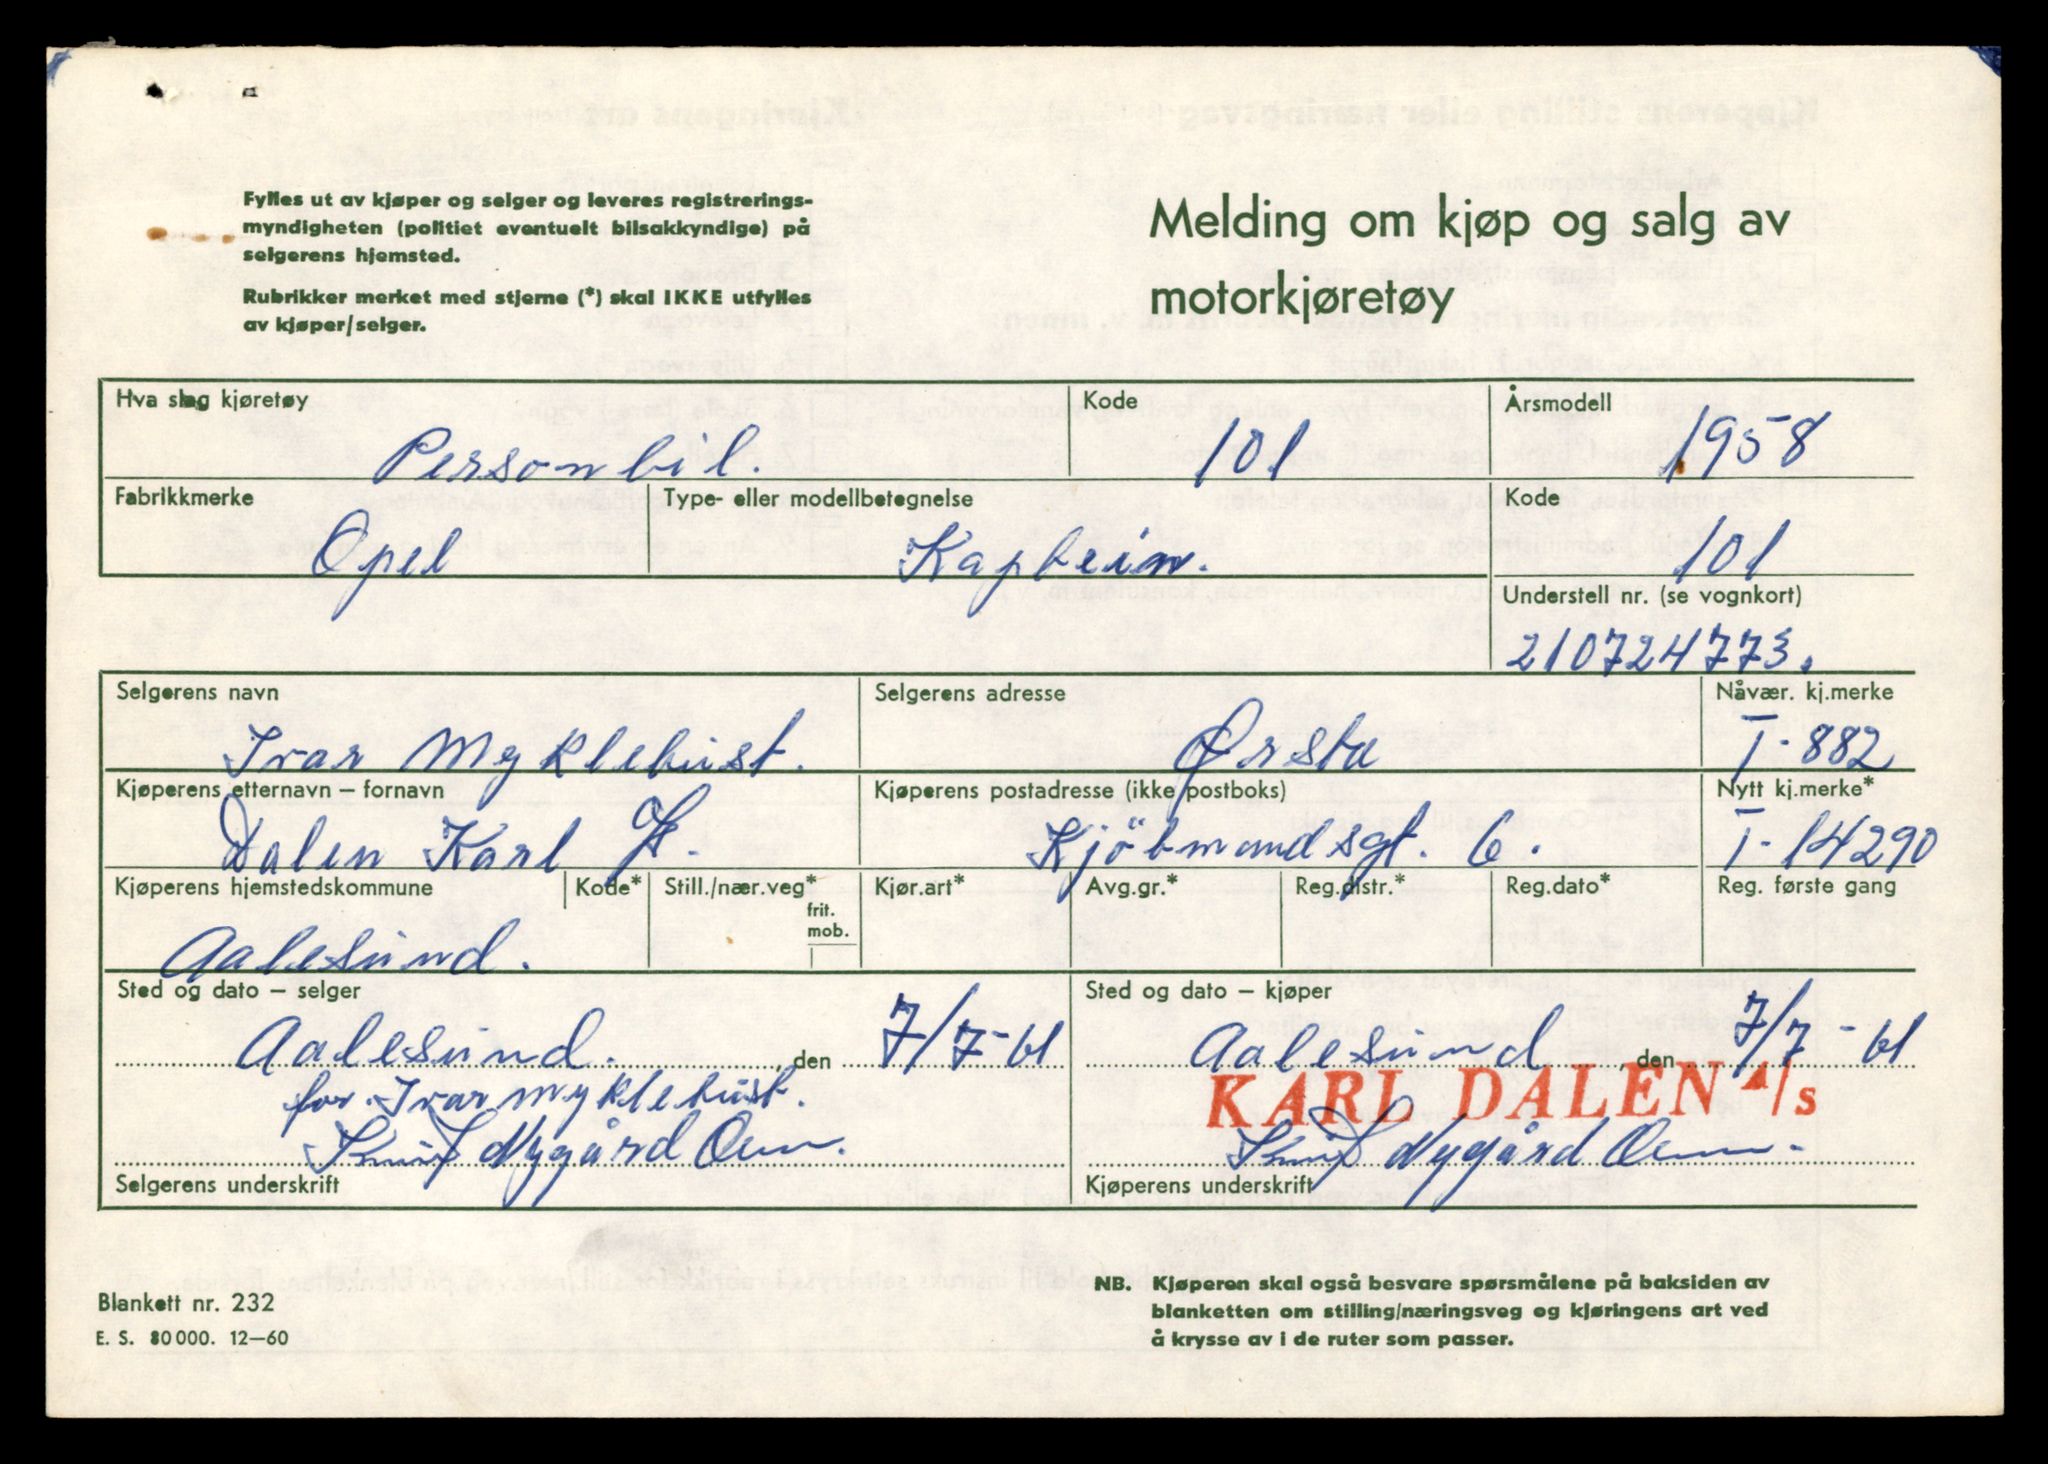 Fylles ut av kjøper og selger og leveres registrerings-
myndigheten (politiet eventuelt bilsakkyndige) på
selgerens hjemsted.
Rubrikker merket med stjerne (*) skal IKKE utfylles
av kjøper/selger.
Melding om kjøp og salg av
motorkjøretøy
Hva slag kjøretøy Kode Årsmodell
Personbil. 101 1958
Fabrikkmerke Type- eller modellbetegnelse Kode
Opel Kaptein. 101
Understell nr. (se vognkort)
210724773.
Selgerens navn Selgerens adresse Nåvær. kj.merke
Ivar Myklebust. Ørsta T-882
Kjøperens etternavn – fornavn Kjøperens postadresse (ikke postboks) Nytt kj.merke*
Dalen Karl A/S. Kjöbmandsgt. 6. T-14290
Kjøperens hjemstedskommune Kode* Still./nær.veg* Kjør.art* Avg.gr.* Reg.distr.* Reg.dato* Reg. første gang
frit.
mob.
Aalesund.
Sted og dato – selger Sted og dato – kjøper
Aalesund. , den 7/7-61 Aalesund , den 7/7-61
for Ivar Myklebust. KARL DALEN A/S
Nygård Nygård
Selgerens underskrift Kjøperens underskrift
NB. Kjøperen skal også besvare spørsmålene på baksiden av
blanketten om stilling/næringsveg og kjøringens art ved
å krysse av i de ruter som passer.
Blankett nr. 232
E. S. 80 000. 12—60